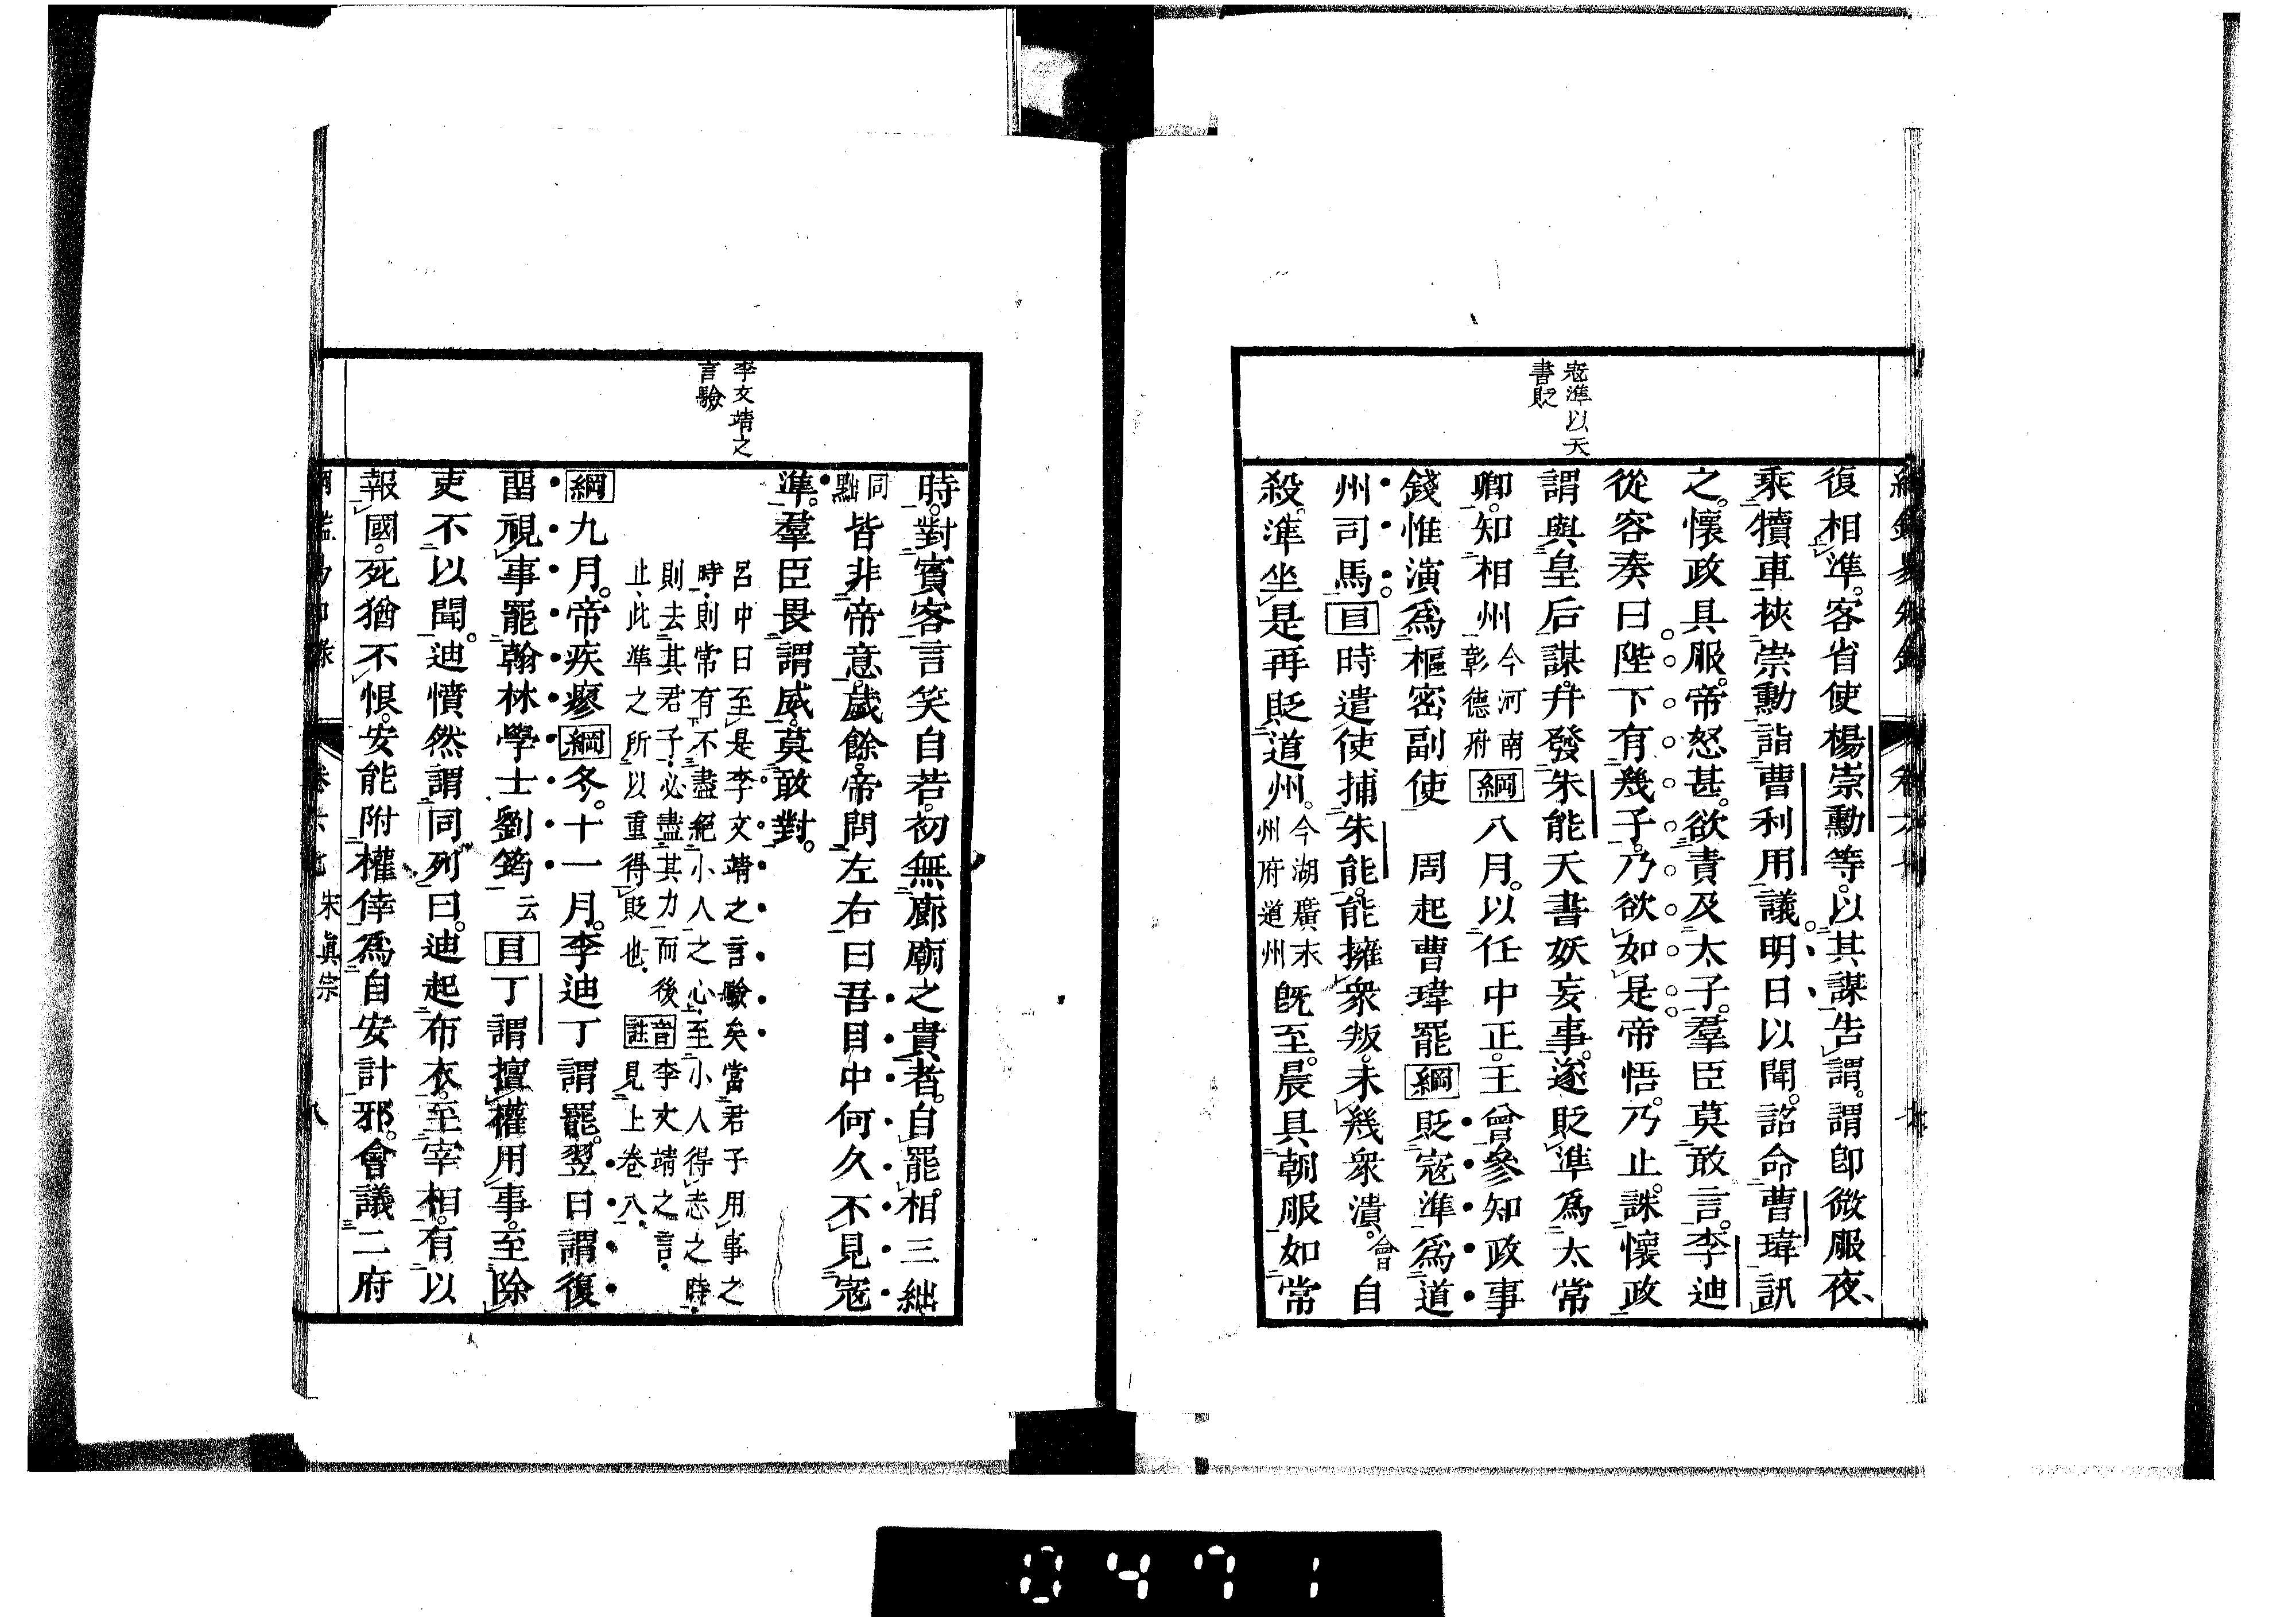 寇準以天
書貶
復相準。客省使楊崇勳等。以其謀告謂。謂卽微服夜
乘犢車。挾崇勳詣曹利用議。明日以聞。詔命曹瑋訊
之。懷政具服。帝怒甚。欲責及太子。羣臣莫敢言。李迪
從容奏曰陛下有幾子。乃欲如是。帝悟。乃止。誅懷政
謂與皇后謀。幷發朱能天書妖妄事。遂貶準爲太常
卿。知相州今河南彰德府綱八月。以任中正。王曾參知政事
錢惟演爲樞密副使 周起曹瑋罷綱貶寇準爲道
州司馬。目時遣使捕朱能。能擁衆叛。未幾衆潰。會自
殺。準坐是再貶道州。今湖廣永州府道州旣至。晨具朝服如常
李文靖之
言驗
時。對賓客言笑自若。初無廊廟之貴者。自罷相三絀
同黜皆非帝意。歲餘。帝問左右曰吾目中何久不見寇
準。羣臣畏謂威。莫敢對。
呂中曰至是李文靖之言驗矣當君子用事之
時則常有不盡絕小人之心至小人得志之時
則去其君子必盡其力而後
止此準之所以重得貶也音註李文靖之言見上卷八
綱九月。帝疾瘳綱冬。十一月。李迪丁謂罷。翌日謂復
留視事罷翰林學士劉筠云目丁謂擅權用事。至除
吏不以聞。迪憤然謂同列曰。迪起布衣。至宰相。有以
報國。死猶不恨。安能附權倖爲自安計邪。會議二府
宋眞宗
八
0471